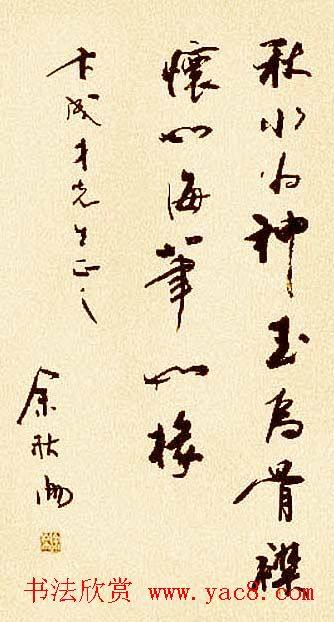 秋水为神玉為骨襟
懷如海筆如椽
卞成才先生正之
余秋雨
书法欣赏 www.yac8.com